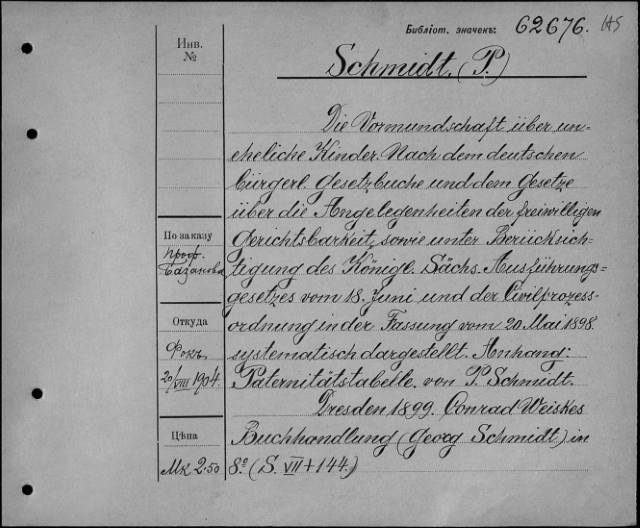 Библіот. значекъ: 62676. HS
Инв.
№
Schmidt, (P.)
Die Vormundschaft über un-
eheliche Kinder. Nach dem deutschen
bürgerl. Gesetzbuche und dem Gesetze
über die Angelegenheiten der freiwilligen
Gerichtsbarkeit, sowie unter Berücksich-
tigung des Königl. Sächs. Ausführungs-
gesetzes vom 18. Juni und der Civilprozess-
ordnung in der Fassung vom 20 Mai 1898.
systematisch dargestellt. Anhang:
Paternitätstabelle. von P. Schmidt.
Dresden 1899. Conrad Weiskes
Buchhandlung (Georg Schmidt) in
8º (S. VII + 144.)
По заказу
проф.
Базанова
Откуда
Фокъ
20/VIII 1904.
Цѣна
Мк 2.50